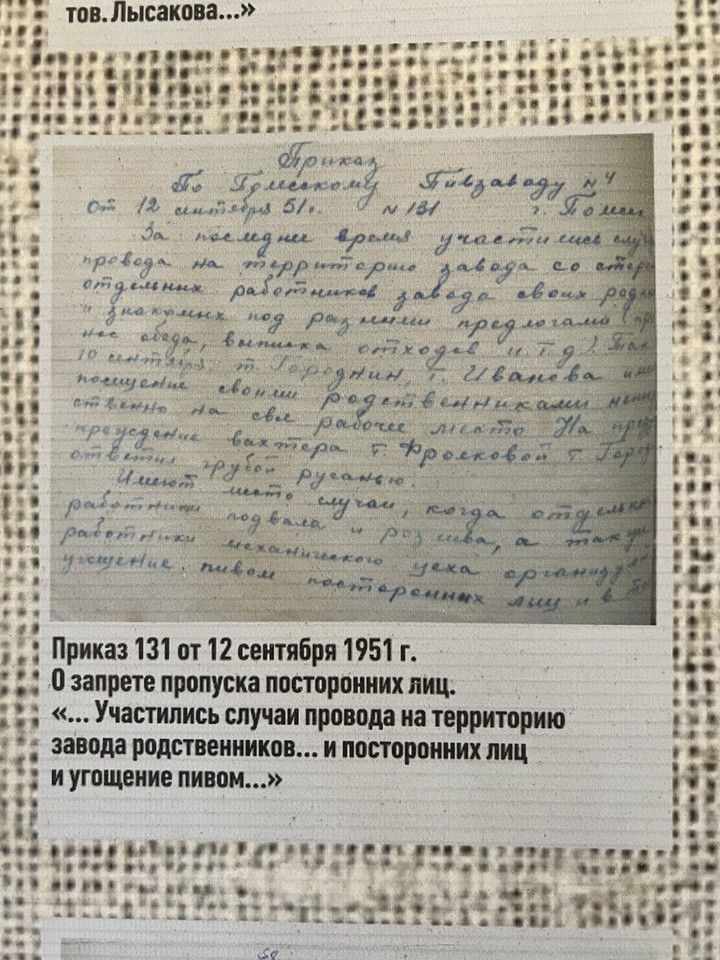 тов. Лысакова...»
Приказ
По Томскому Пивзаводу №4
От 12 сентября 51 г. №131 г. Томск
За последнее время участились случ
провода на территорию завода со сторо
отдельных работников завода своих родс
и знакомых под разными предлогами (
нос обеда, выписка отходов и. т. д). Так
10 сентября т. Городнин, т. Иванова
посещение своими родственниками непос
ственно на свое рабочее место На пред
преждение вахтера т. Фролковой т. Город
ответил грубой руганью.
Имеют место случаи, когда отдельные
работники подвала и розлива, а также
работники механического цеха организуют
угощение пивом посторонних лиц и в
Приказ 131 от 12 сентября 1951 г.
О запрете пропуска посторонних лиц.
«... Участились случаи провода на территорию
завода родственников... и посторонних лиц
и угощение пивом...»